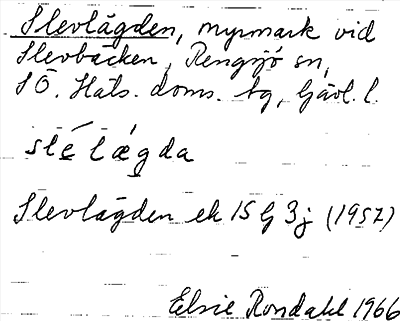 Slevlägden, myrmark vid
Slevbäcken, Rengsjö sn,
SÖ. Häls. doms. tg, Gävl. l.
slé læ̀gda
Slevlägden ek 15G 3j (1957)
Elsie Rondahl 1966